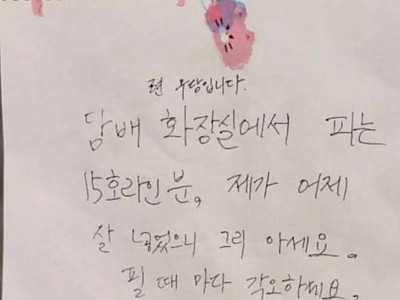 무당입니다.
담배 화장실에서 피는
15호라인 분, 제가 어제
살 넣었으니 그리 아세요.
필 때 마다 각오하세요.